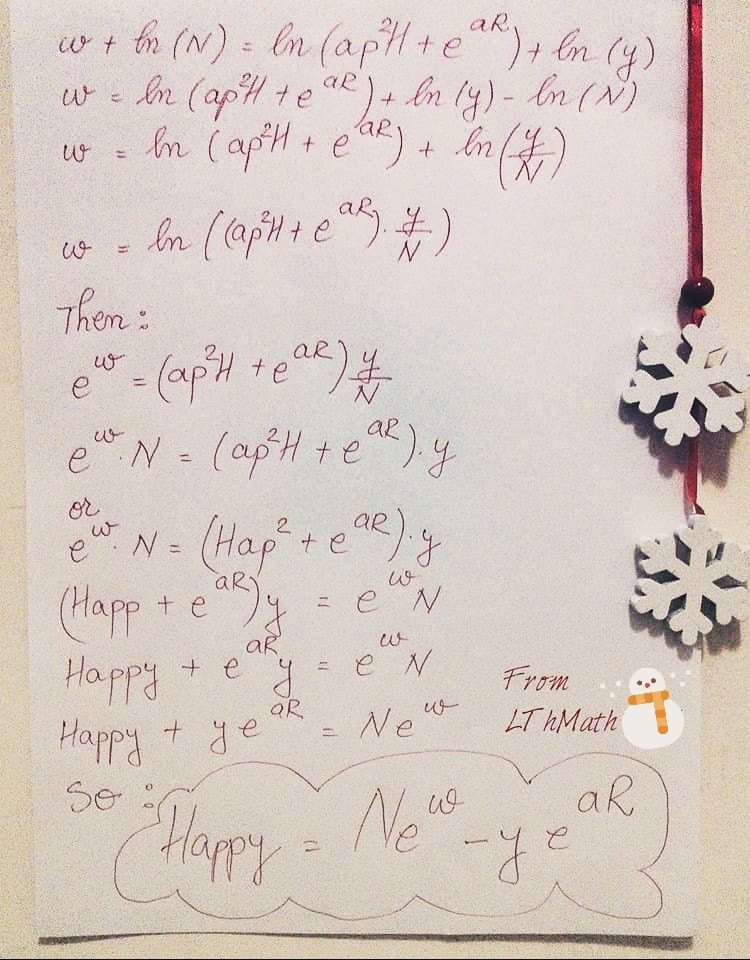 w + ln (N) = ln (ap²H + e^aR) + ln (y)
w = ln (ap²H + e^aR) + ln (y) - ln (N)
w = ln (ap²H + e^aR) + ln (y/N)
w = ln ((ap²H + e^aR) · y/N)
Then:
e^w = (ap²H + e^aR) y/N
e^w · N = (ap²H + e^aR) · y
or
e^w · N = (Hap² + e^aR) · y
(Happ + e^aR) y = e^w N
Happy + e^aR y = e^w N
Happy + y e^aR = N e^w
From
LThMath
So:
Happy = Ne^w - y e^aR